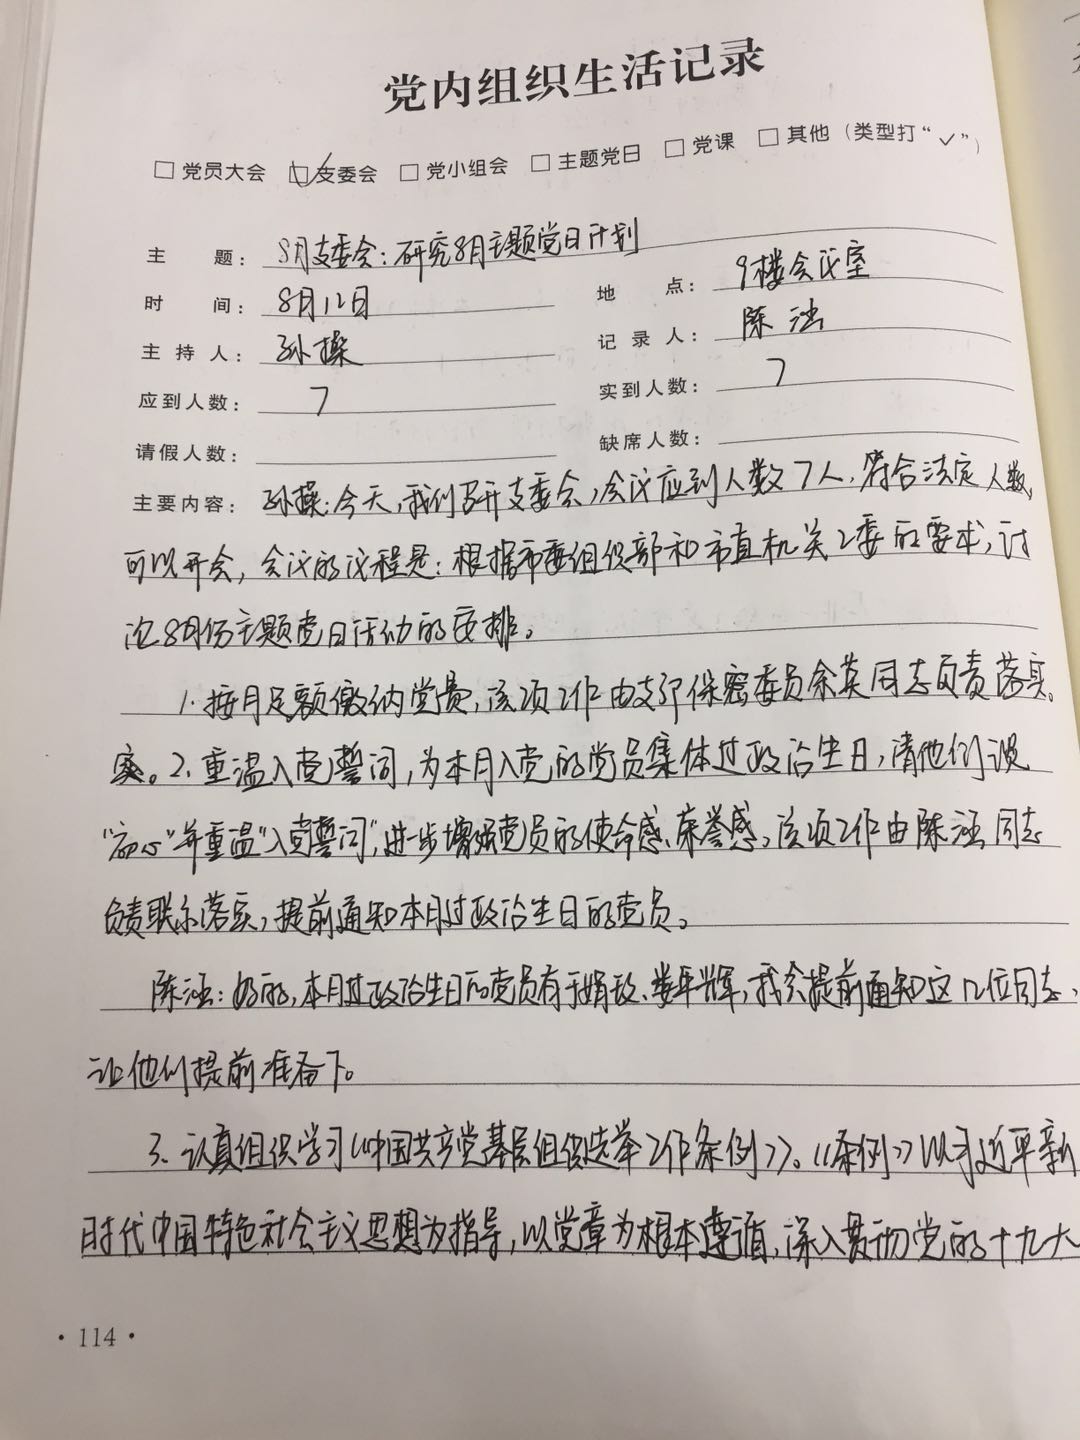 党内组织生活记录
□ 党员大会 □✓ 支委会 □ 党小组会 □ 主题党日 □ 党课 □ 其他（类型打“✓”）
主 题： 8月支委会：研究8月主题党日计划
时 间： 8月12日 地 点： 9楼会议室
主 持 人： 孙操 记 录 人： 陈涵
应到人数： 7 实到人数： 7
请假人数： 缺席人数：
主要内容： 孙操：今天，我们召开支委会，会议应到人数7人，符合法定人数，
可以开会，会议的议程是：根据市委组织部和市直机关工委的要求，讨
论8月份主题党日活动的安排。
1.按月足额缴纳党费，该项工作由支部保密委员余英同志负责落实。
实。2.重温入党誓词，为本月入党的党员集体过政治生日，请他们谈
“初心”并重温“入党誓词”，进一步增强党员的使命感、荣誉感，该项工作由陈涵同志
负责联系落实，提前通知本月过政治生日的党员。
陈涵：好的，本月过政治生日的党员有于娟、辉，我会提前通知这几位同志，
让他们提前准备下。
3.认真组织学习《中国共产党基层组织选举工作条例》。《条例》以习近平新
时代中国特色社会主义思想为指导，以党章为根本遵循，深入贯彻党的十九大
·114·